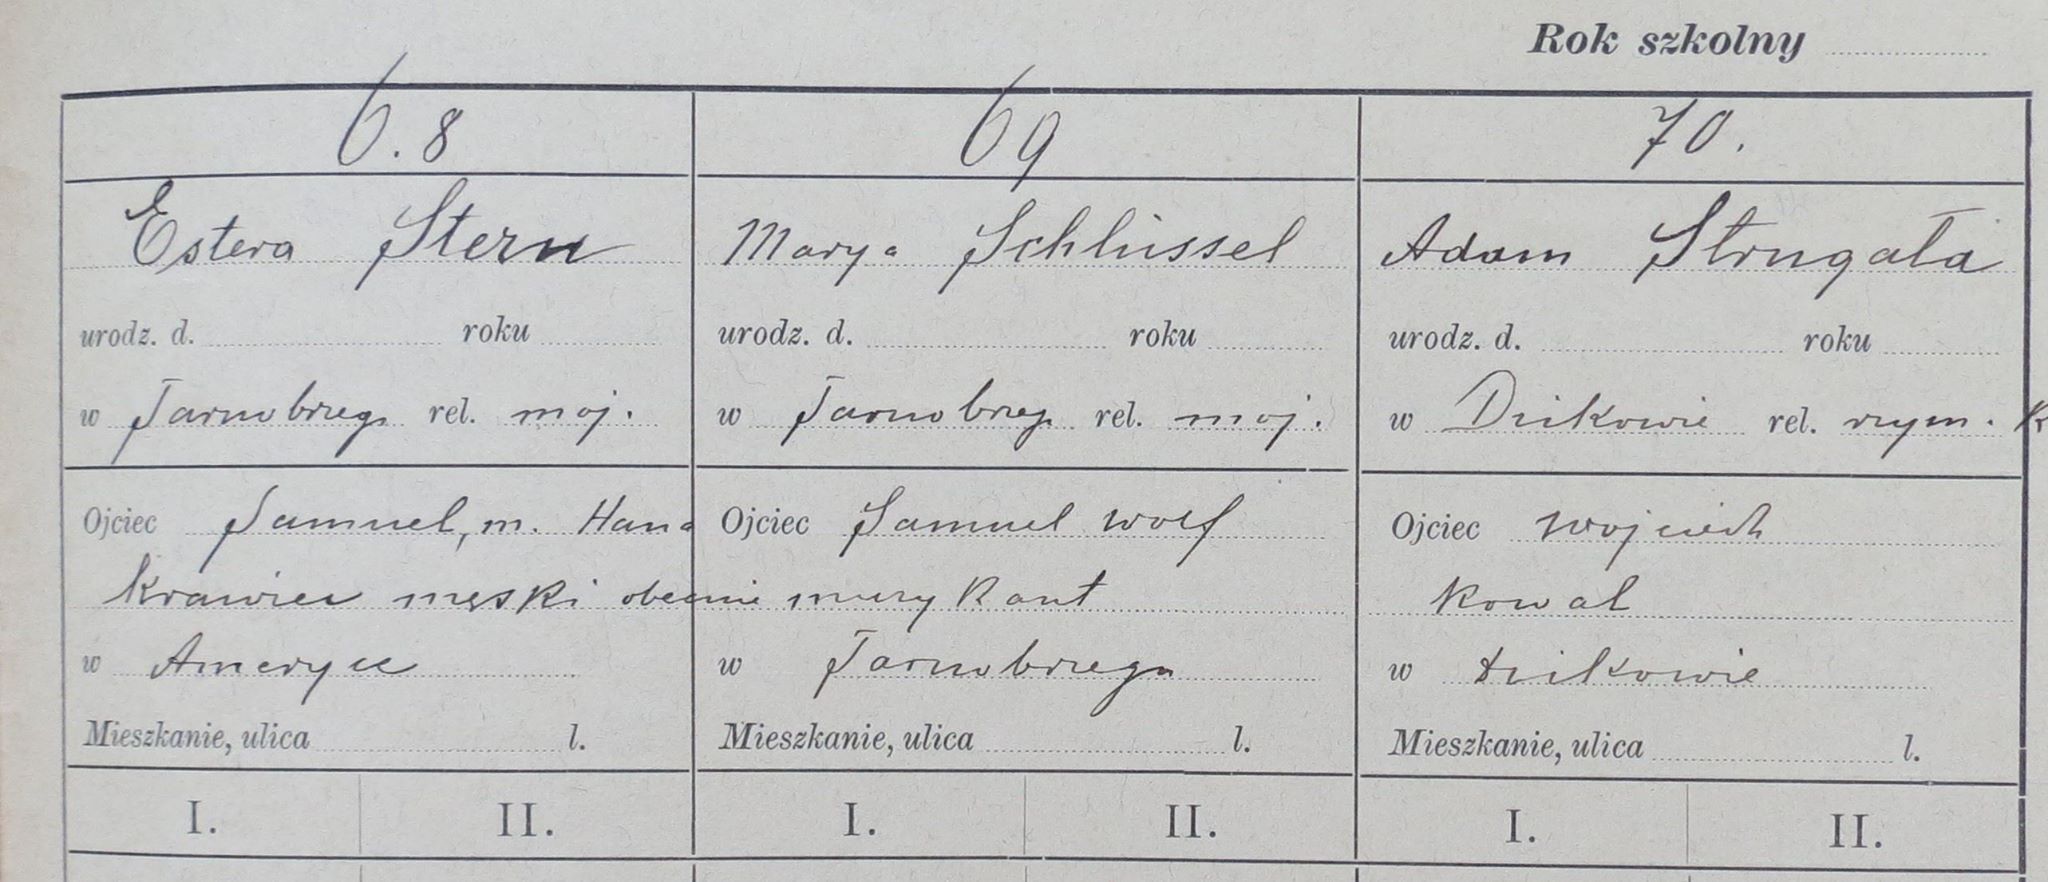 Rok szkolny
6.8
Estera Stern
urodz. d. roku
w Tarnobrzegu rel. moj.
Ojciec Samuel, m. Hana
krawiec męski obecnie
w Ameryce
Mieszkanie, ulica l.
I. II.
69
Marya Schlüssel
urodz. d. roku
w Tarnobrzegu rel. moj.
Ojciec Samuel Wolf
muzykant
w Tarnobrzegu
Mieszkanie, ulica l.
I. II.
70.
Adam Strugała
urodz. d. roku
w Dzikowie rel. rzym. k
Ojciec Wojciech
Kowal
w Dzikowie
Mieszkanie, ulica l.
I. II.